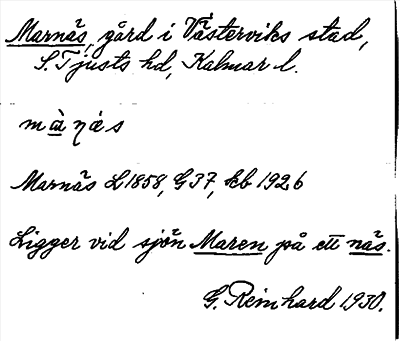 Marnäs, gård i Västerviks stad,
S. Tjusts hd, Kalmar l.
Marnäs L1858, G37, kb 1926
Ligger vid sjön Maren på ett näs.
G. Reinhard 1930.